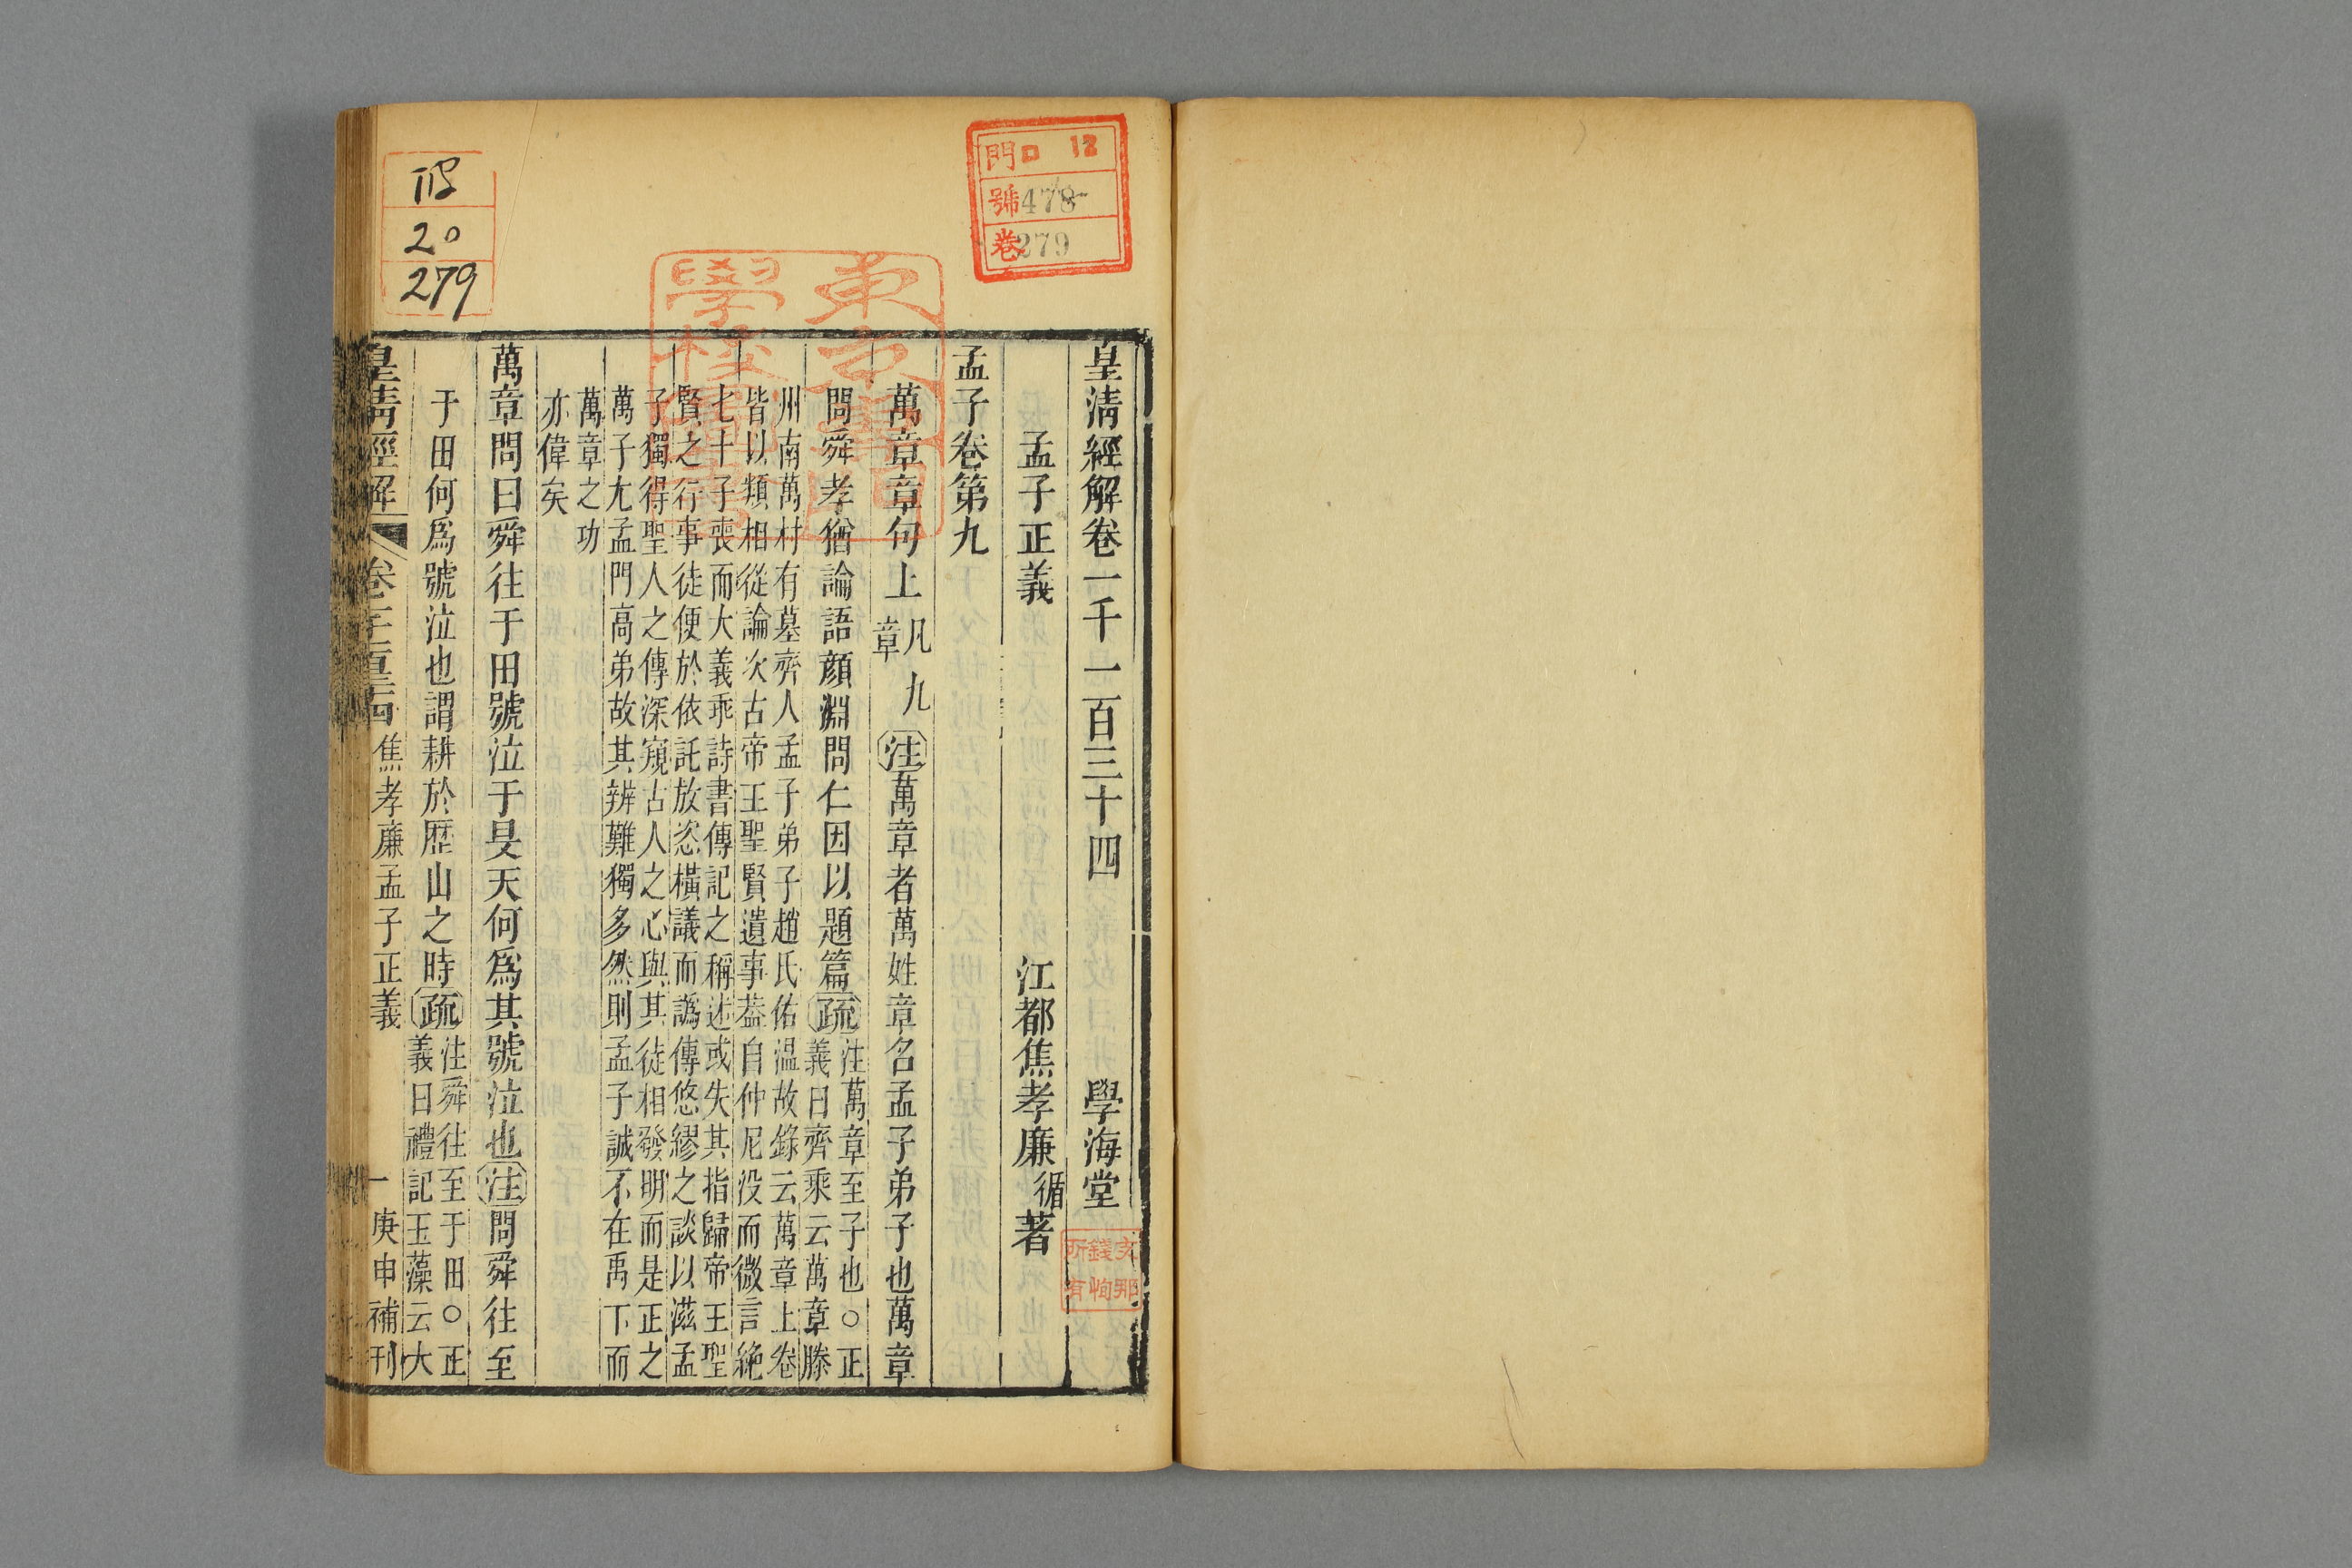 皇清經解卷一千一百三十四 學海堂
孟子正義 江都焦孝廉循著
孟子卷第九
萬章章句上 凡九章 注萬章者萬姓章名孟子弟子也萬章
問舜孝猶論語顏淵問仁因以題篇疏注萬章至子也○正
義曰齊乘云萬章滕
州南萬村有墓齊人孟子弟子趙氏佑温故錄云萬章上卷
皆以類相從論次古帝王聖賢遺事葢自仲尼没而微言絶
七十子喪而大義乖詩書傳記之稱述或失其指歸帝王聖
賢之行事徒便於依託放恣橫議而譌傳悠繆之談以滋孟
子獨得聖人之傳深窺古人之心與其徒相發明而是正之
萬子尤孟門高弟故其辨難獨多然則孟子誠不在禹下而
萬章之功
亦偉矣
萬章問曰舜往于田號泣于旻天何爲其號泣也注問舜往至
于田何爲號泣也謂耕於歷山之時疏注舜往至于田○正
義曰禮記玉藻云大
皇清經解 焦孝廉孟子正義 一 庚申補刊
門 ロ 12
號 478
卷 279
20
279